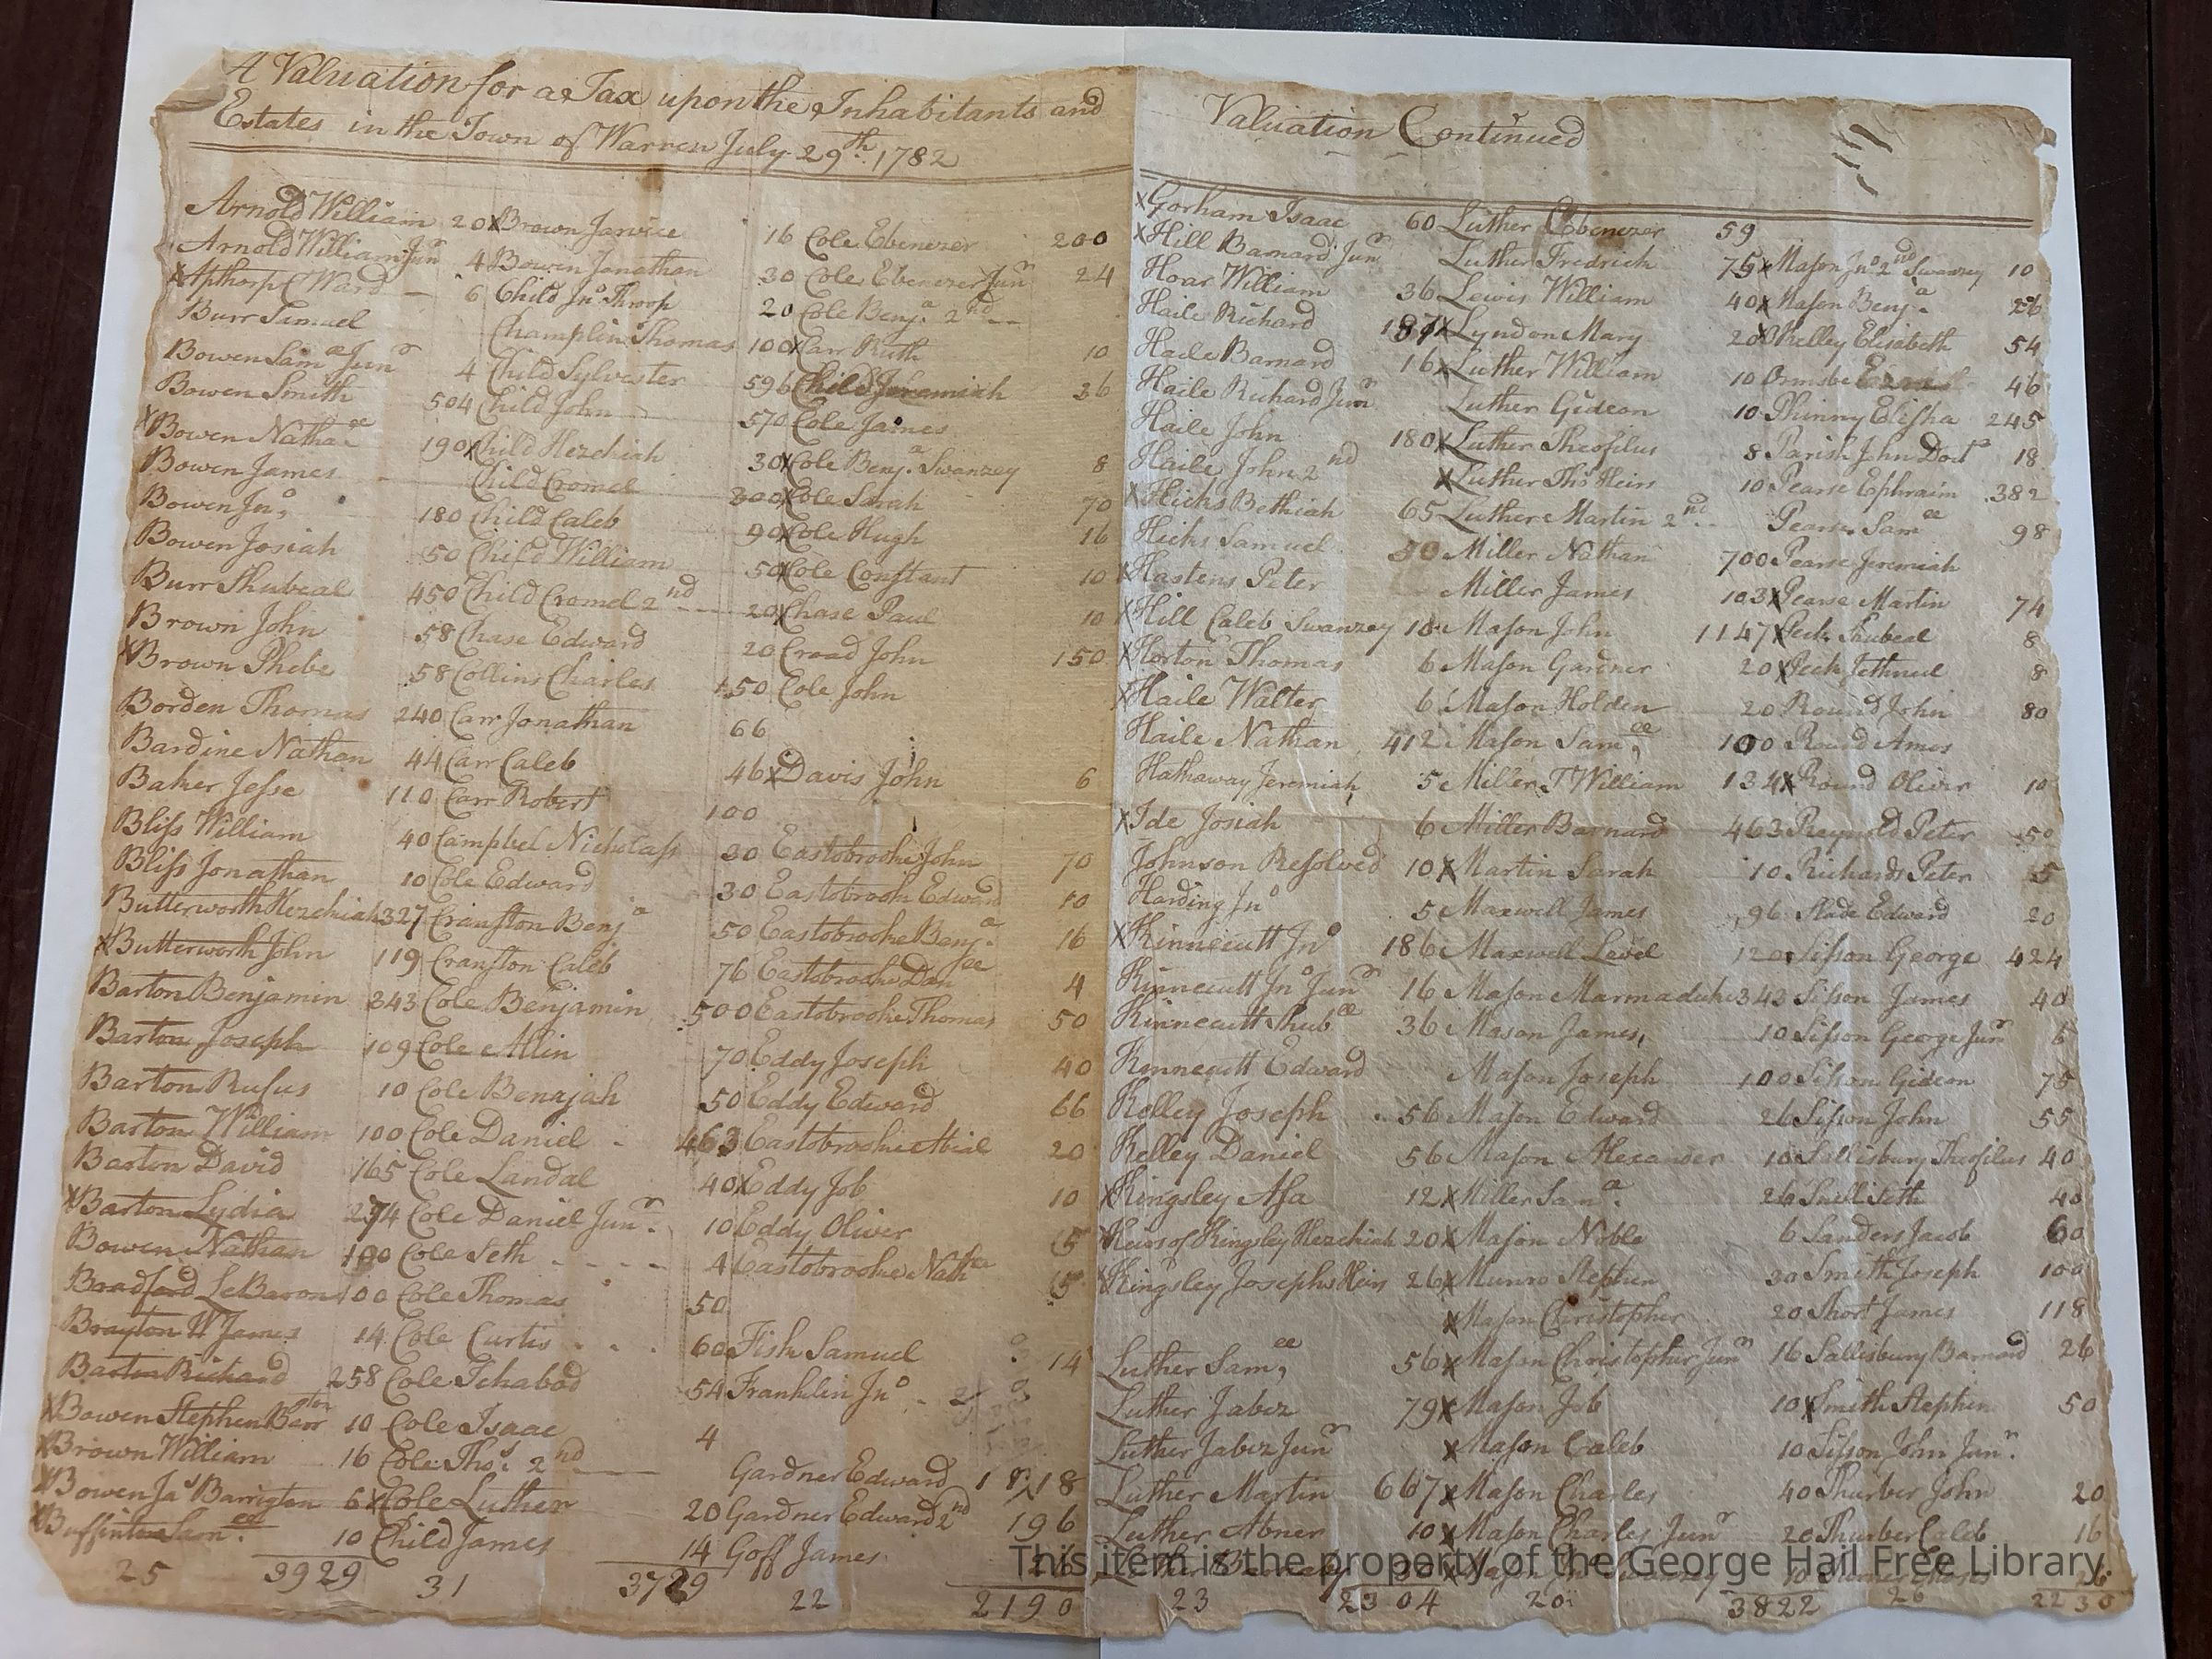 A Valuation for a Tax upon the Inhabitants and
Estates in the Town of Warren July 29th 1782
Arnold William 20
Arnold William Junr 4
x Apthorp C Ward 6
Burr Samuel
Bowen Samll Junr 4
Bowen Smith 504
x Bowen Nathall 190
Bowen James
Bowen Jno 180
Bowen Josiah 50
Burr Shubeal 450
Brown John 58
x Brown Phebe 58
Borden Thomas 240
Bardine Nathan 44
Baker Jesse 110
Bliss William 40
Bliss Jonathan 10
Butterworth Hezekiah 327
x Butterworth John 119
Barton Benjamin 343
Barton Joseph 109
Barton Rufus 10
Barton William 100
Barton David 165
x Barton Lydia 274
Bowen Nathan 100
Bradford LeBaron 100
Brayton W James 14
Barton Richard 258
x Bowen Stephen Barrgton 10
x Brown William 16
x Bowen Jas Barrigton 6
x Buffinton Samll 10
25 3929
x Brown Janvice 16
Bowen Jonathan 30
Child Jno Throop 20
Champlin Thomas 100
Child Sylvester 596
Child John 570
x Child Hezekiah 30
Child Cromel 300
Child Caleb 90
Child William 50
Child Cromel 2nd 20
Chase Edward 20
Collins Charles 150
Carr Jonathan 66
Carr Caleb 46
Carr Robert 100
Campbel Nicholass 30
Cole Edward 30
Cranston Benja 50
Cranston Caleb 76
Cole Benjamin 500
Cole Allin 70
Cole Benajah 50
Cole Daniel 463
Cole Landal 40
Cole Daniel Junr 10
Cole Seth 4
Cole Thomas 50
Cole Curtis 60
Cole Ichabod 54
Cole Isaac 4
Cole Thos 2nd
x Cole Luther 20
Child James 14
31 3729
Cole Ebenezer 200
Cole Ebenezer Junr 24
Cole Benja 2nd
x Carr Ruth 10
Child Jeremiah 36
Cole James
x Cole Benja Swanzey 8
x Cole Sarah 70
x Cole Hugh 16
x Cole Constant 10
x Chase Paul 10
Cread John 150
Cole John
x Davis John 6
Eastobrooke John 70
Eastobrook Edward 10
Eastobrooke Benja 16
Eastobrooke Danll 4
Eastobrooke Thomas 50
Eddy Joseph 40
Eddy Edward 66
Eastobrooke Abiel 20
x Eddy Job 10
Eddy Oliver 5
Eastobrooke Nathll 5
Fish Samuel 14
Franklin Jno
Gardner Edward 18
Gardner Edward 2nd 196
Goff James
22 2190
Valuation Continued
x Gorham Isaac 60
x Hill Barnard Junr
Hoar William 36
Haile Richard 187
Haile Barnard 16
Haile Richard Junr
Haile John 180
Haile John 2nd
x Hicks Bethiah 65
Hicks Samuel 50
x Hastens Peter
x Hill Caleb Swanzey 10
x Horton Thomas 6
x Haile Walter 6
Haile Nathan 412
Hathaway Jeremiah 5
x Ide Josiah 6
Johnson Resolved 10
Harding Jno 5
x Kinnecutt Jno 186
Kinnecutt Jno Junr 16
Kinnecutt Shubll 36
Kinnecutt Edward
Kelley Joseph 56
Kelley Daniel 56
x Kingsley Asa 12
x Heirs of Kingsley Hezekiah 20
x Kingsley Josephs Heirs 26
Luther Samll 56
Luther Jabez 79
Luther Jabez Junr
Luther Martin 667
Luther Abner 10
23 2304
Luther Ebenezer 59
Luther Fredrich 75
Lewis William 40
x Lyndon Mary 20
x Luther William 10
Luther Gideon 10
x Luther Theofilus 8
x Luther Thos Heirs 10
Luther Martin 2nd
Miller Nathan 700
Miller James 103
Mason John 1147
Mason Gardner 20
Mason Holden 20
Mason Samll 100
Miller T William 134
Miller Barnard 463
x Martin Sarah 10
Maxwell James 96
Maxwell Level 120
Mason Marmaduke 343
Mason James 10
Mason Joseph 100
Mason Edward 26
Mason Alexander 10
x Miller Sama 26
x Mason Noble 6
x Munro Stephen 30
x Mason Christopher 20
x Mason Christopher Junr 16
x Mason Job 10
x Mason Caleb 10
x Mason Charles 40
x Mason Charles Junr 20
20 3822
x Mason Jno 2nd Swanzey 10
x Mason Benja 26
x Kelley Elisabeth 54
Ormsbe 46
Phinny Elisha 245
Parish John Doct 18
Pearse Ephraim 382
Pearse Samll 98
Pearse Jeremiah
x Pearse Martin 74
x Peck Shubeal 8
x Peck Jethnel 8
Round John 80
Round Amos
x Round Oliver 10
Reynold Peter 50
Richards Peter 5
Slade Edward 20
Sisson George 424
Sisson James 40
Sisson George Junr 6
Sisson Gideon 75
Sisson John 55
Sallisbury Theofilus 40
Snell Seth 40
Sanders Jacob 60
Smith Joseph 100
Short James 118
Sallisbury Barnard 26
x Smith Stephen 50
Sisson John Junr
Thurber John 20
Thurber Caleb 16
26 2230
This item is the property of the George Hail Free Library.